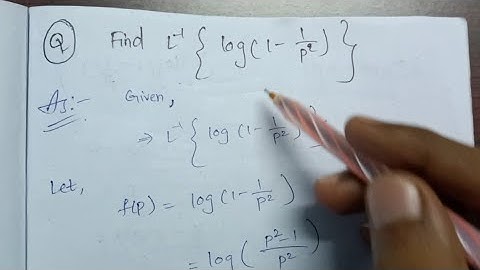 Q Find L⁻¹ { log(1 - 1/p²) }
As:- Given,
⇒ L⁻¹ { log(1 - 1/p²) }
Let,
f(p) = log(1 - 1/p²)
= log( p²-1/p² )